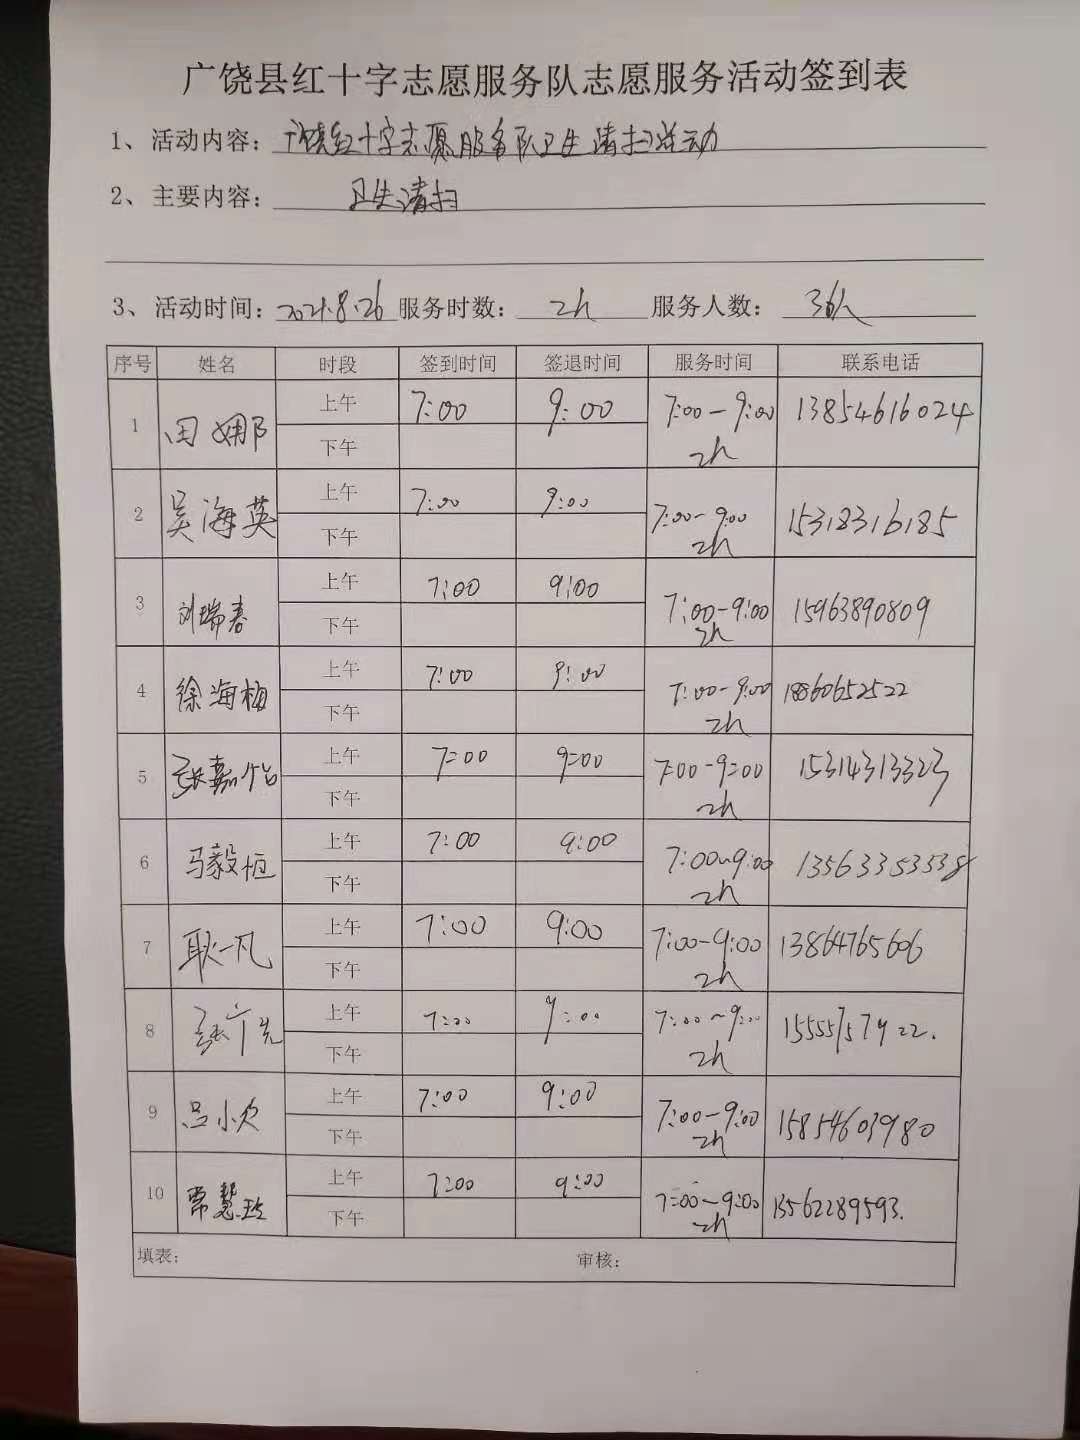 广饶县红十字志愿服务队志愿服务活动签到表
1、活动内容：广饶红十字志愿服务队卫生请扫活动
2、主要内容：卫生请扫
3、活动时间：2021.8.26 服务时数：2h 服务人数：36人
序号 姓名 时段 签到时间 签退时间 服务时间 联系电话
1 田娜 上午 7:00 9:00 7:00-9:00 2h 13854616024
下午
2 吴海英 上午 7:00 9:00 7:00-9:00 2h 15318316185
下午
3 刘瑞春 上午 7:00 9:00 7:00-9:00 2h 15963890809
下午
4 徐海梅 上午 7:00 9:00 7:00-9:00 2h 18860652522
下午
5 张嘉怡 上午 7:00 9:00 7:00-9:00 2h 15314313323
下午
6 马毅恒 上午 7:00 9:00 7:00~9:00 2h 13563353538
下午
7 耿一凡 上午 7:00 9:00 7:00-9:00 2h 13864765606
下午
8 上午 7:00 9:00 7:00~9:00 2h
下午
9 吕小 上午 7:00 9:00 7:00-9:00 2h 15854603980
下午
10 常慧 上午 7:00 9:00 7:00-9:00 2h 13562289593.
下午
填表： 审核：